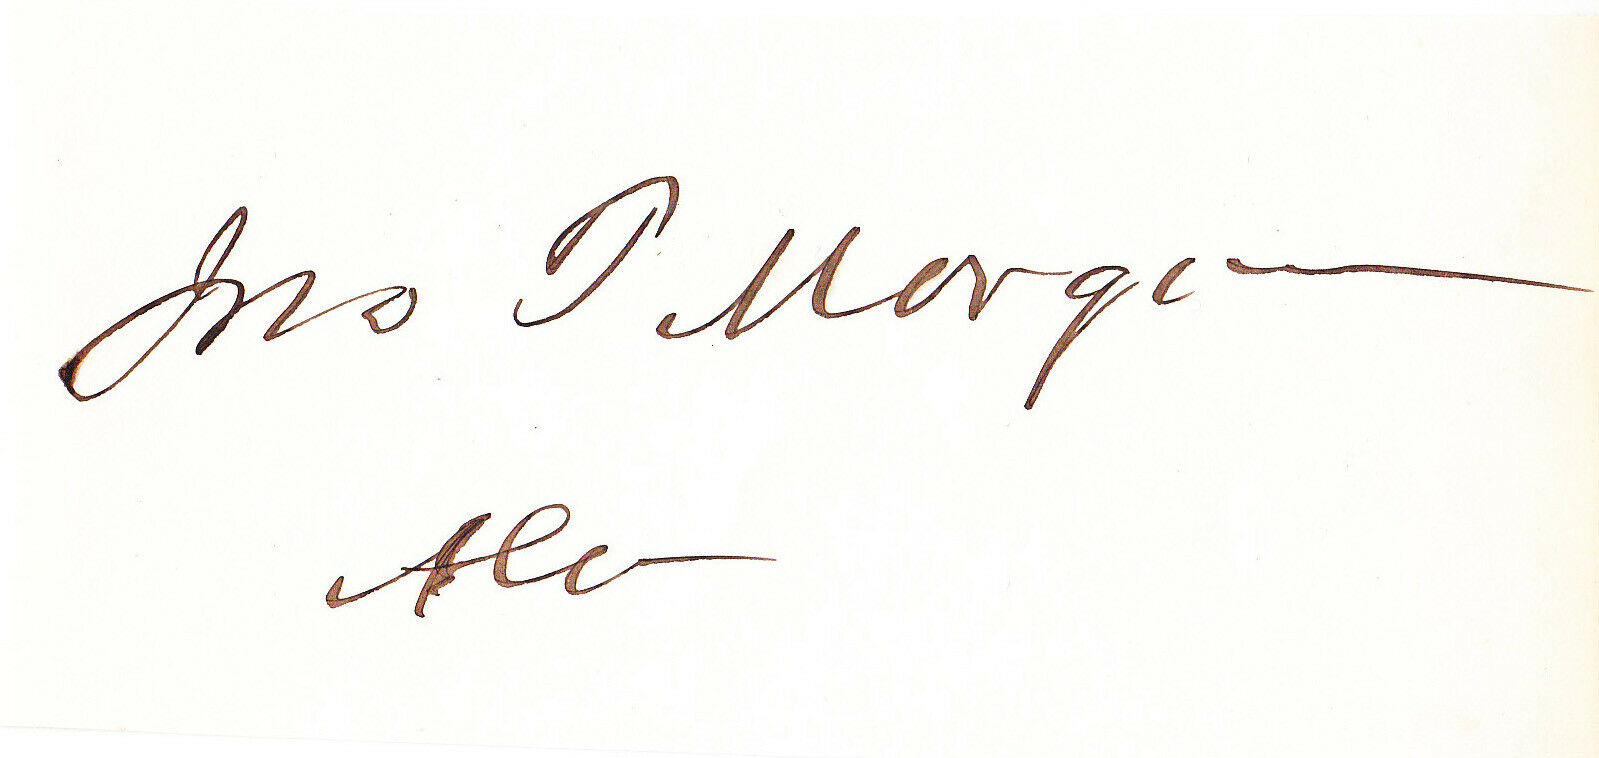 Jno T Morgan
Ala